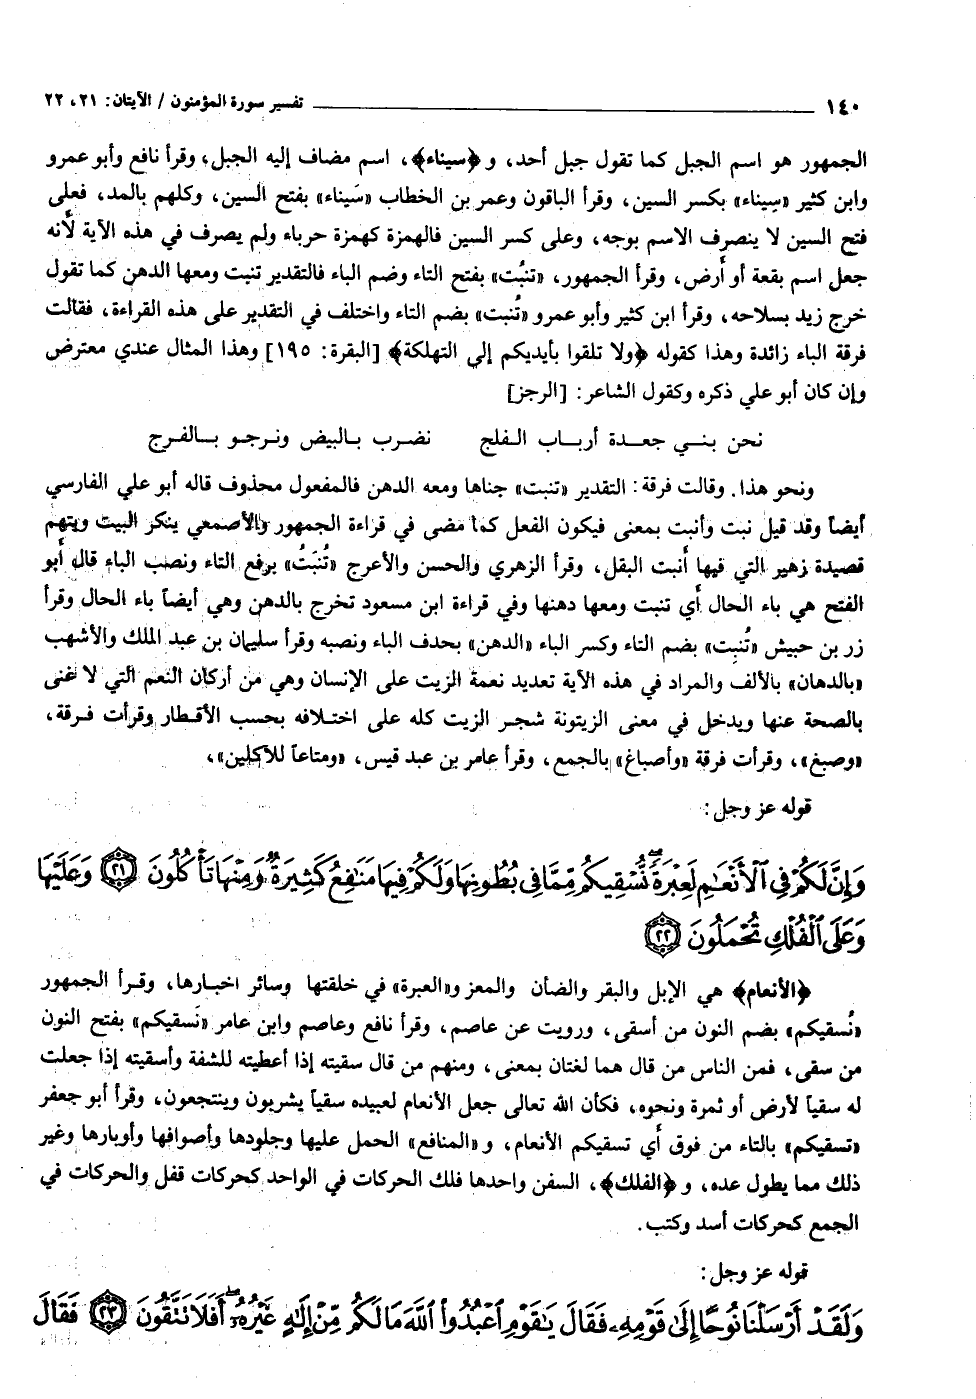 ١٤٠ تفسير سورة المؤمنون / الآيتان: ٢١، ٢٢
الجمهور هو اسم الجبل كما تقول جبل أحد، و ﴿سيناء﴾، اسم مضاف إليه الجبل، وقرأ نافع وأبو عمرو
وابن كثير «سِيناء» بكسر السين، وقرأ الباقون وعمر بن الخطاب «سَيناء» بفتح السين، وكلهم بالمد، فعلى
فتح السين لا ينصرف الاسم بوجه، وعلى كسر السين فالهمزة كهمزة حرباء ولم يصرف في هذه الآية لأنه
جعل اسم بقعة أو أرض، وقرأ الجمهور، «تنبُت» بفتح التاء وضم الباء فالتقدير تنبت ومعها الدهن كما تقول
خرج زيد بسلاحه، وقرأ ابن كثير وأبو عمرو «تُنبت» بضم التاء واختلف في التقدير على هذه القراءة، فقالت
فرقة الباء زائدة وهذا كقوله ﴿ولا تلقوا بأيديكم إلى التهلكة﴾ [البقرة: ١٩٥] وهذا المثال عندي معترض
وإن كان أبو علي ذكره وكقول الشاعر: [الرجز]
نحن بنـي جعـدة أربـاب الـفلج نضـرب بـالبيض ونـرجـو بـالفـرج
ونحو هذا. وقالت فرقة: التقدير «تنبت» جناها ومعه الدهن فالمفعول محذوف قاله أبو علي الفارسي
أيضاً وقد قيل نبت وأنبت بمعنى فيكون الفعل كما مضى في قراءة الجمهور والأصمعي ينكر البيت ويتهم
قصيدة زهير التي فيها أنبت البقل، وقرأ الزهري والحسن والأعرج «تُنبَتُ» برفع التاء ونصب الباء قال أبو
الفتح هي باء الحال أي تنبت ومعها دهنها وفي قراءة ابن مسعود تخرج بالدهن وهي أيضاً باء الحال وقرأ
زر بن حبيش «تُنبِت» بضم التاء وكسر الباء «الدهن» بحدف الباء ونصبه وقرأ سليمان بن عبد الملك والأشهب
«بالدهان» بالألف والمراد في هذه الآية تعديد نعمة الزيت على الإنسان وهي من أركان النعم التي لا غنى
بالصحة عنها ويدخل في معنى الزيتونة شجـر الزيت كله على اختـلافه بحسب الأقـطار وقـرأت فـرقة،
«وصبغ»، وقرأت فرقة «وأصباغ» بالجمع، وقرأ عامر بن عبد قيس، «ومتاعاً للآكلين»،
قوله عز وجل:
وَإِنَّ لَكُمْ فِي ٱلْأَنْعَٰمِ لَعِبْرَةً نُّسْقِيكُم مِّمَّا فِي بُطُونِهَا وَلَكُمْ فِيهَا مَنَٰفِعُ كَثِيرَةٌ وَمِنْهَا تَأْكُلُونَ ٢١ وَعَلَيْهَا
وَعَلَى ٱلْفُلْكِ تُحْمَلُونَ ٢٢
﴿الأنعام﴾ هي الإبل والبقر والضأن والمعز و«العبرة» في خلقتها وسائر اخبـارها، وقـرأ الجمهور
«نُسقيكم» بضم النون من أسقى، ورويت عن عاصم، وقرأ نافع وعاصم وابن عامر «نَسقيكم» بفتح النون
من سقى، فمن الناس من قال هما لغتان بمعنى، ومنهم من قال سقيته إذا أعطيته للشفة وأسقيته إذا جعلت
له سقياً لأرض أو ثمرة ونحوه، فكأن الله تعالى جعل الأنعام لعبيده سقياً يشربون وينتجعون، وقرأ أبو جعفر
«تسقيكم» بالتاء من فوق أي تسقيكم الأنعام، و «المنافع» الحمل عليها وجلودها وأصوافها وأوبارها وغير
ذلك مما يطول عده، و ﴿الفلك﴾، السفن واحدها فلك الحركات في الواحد كحركات قفل والحركات في
الجمع كحركات أسد وكتب.
قوله عز وجل:
وَلَقَدْ أَرْسَلْنَا نُوحًا إِلَىٰ قَوْمِهِۦ فَقَالَ يَٰقَوْمِ ٱعْبُدُوا۟ ٱللَّهَ مَا لَكُم مِّنْ إِلَٰهٍ غَيْرُهُۥٓ أَفَلَا تَتَّقُونَ ٢٣ فَقَالَ